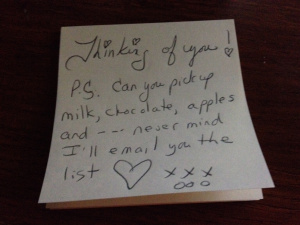 Thinking of you!
P.S. Can you pick up
milk, chocolate, apples
and --- never mind
I'll email you the
list ♡ x x x
ooo